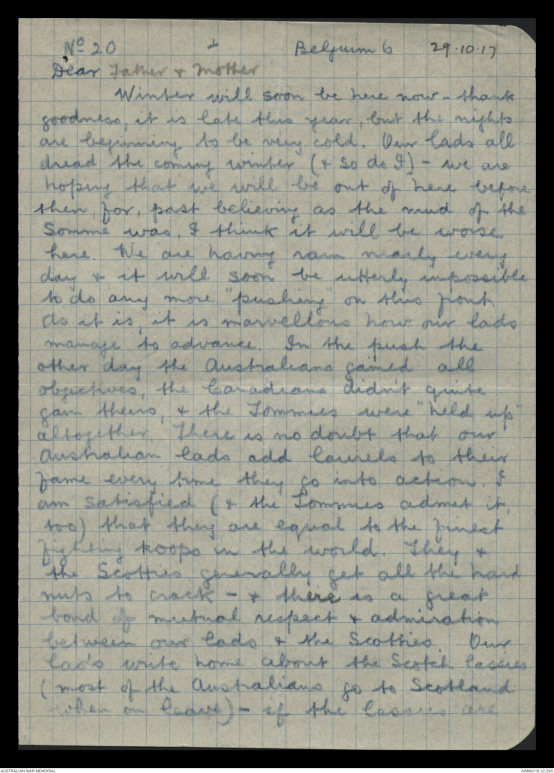 No 20 1 Belguim 6 29.10.17
Dear Father & Mother
Winter will soon be here now - thank
goodness, it is late this year, but the nights
are beginning to be very cold. Our lads all
dread the coming winter (& so do I) - we are
hoping that we will be out of here before
then, for, past believing as the mud of the
Somme was, I think it will be worse
here. We are having rain nearly every
day & it will soon be utterly impossible
to do any more "pushing" on this front.
As it is, it is marvellous how our lads
manage to advance. In the push the
other day the Australians gained all
objectives, the Canadians didn't quite
gain theirs, & the Tommies were "held up"
altogether. There is no doubt that our
Australian lads add laurels to their
fame every time they go into action. I
am satisfied (& the Tommies admit it,
too) that they are equal to the finest
fighting troops in the world. They &
the Scotties generally get all the hard
nuts to crack - & there is a great
bond of mutual respect & admiration
between our lads & the Scotties. Our
lads write home about the Scotch lassies
(most of the Australians go to Scotland
when on leave) - if the lassies are
AUSTRALIAN WAR MEMORIAL